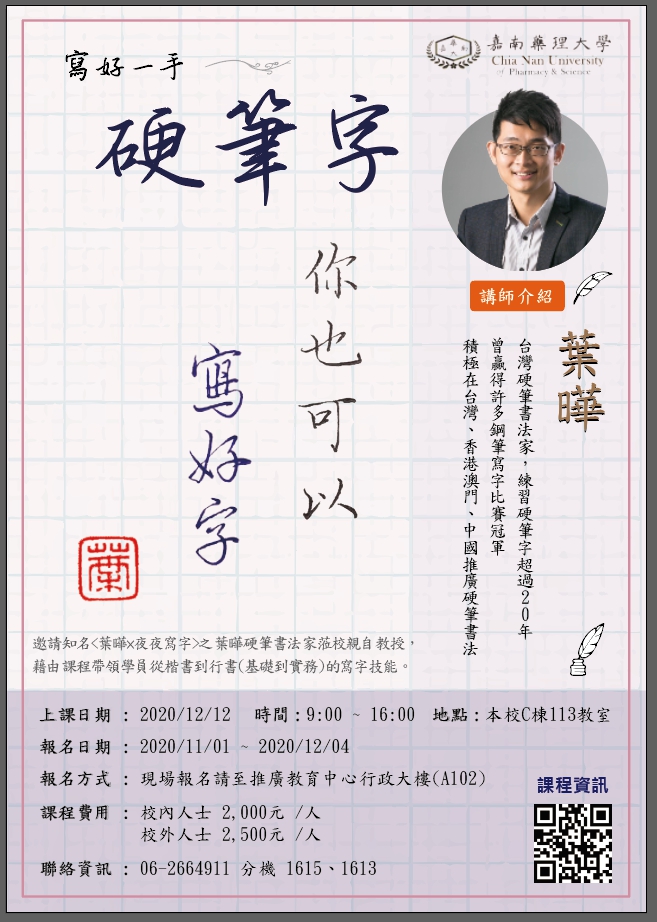 寫好一手
硬筆字
嘉南藥理大學
Chia Nan University
of Pharmacy & Science
你也可以
寫好字
葉
講師介紹
葉曄
台灣硬筆書法家，練習硬筆字超過20年
曾贏得許多鋼筆寫字比賽冠軍
積極在台灣、香港澳門、中國推廣硬筆書法
邀請知名<葉曄x夜夜寫字>之葉曄硬筆書法家蒞校親自教授，
藉由課程帶領學員從楷書到行書(基礎到實務)的寫字技能。
上課日期 : 2020/12/12 時間:9:00 ~ 16:00 地點:本校C棟113教室
報名日期 : 2020/11/01 ~ 2020/12/04
報名方式 : 現場報名請至推廣教育中心行政大樓(A102)
課程費用 : 校內人士 2,000元 /人
校外人士 2,500元 /人
聯絡資訊 : 06-2664911 分機 1615、1613
課程資訊